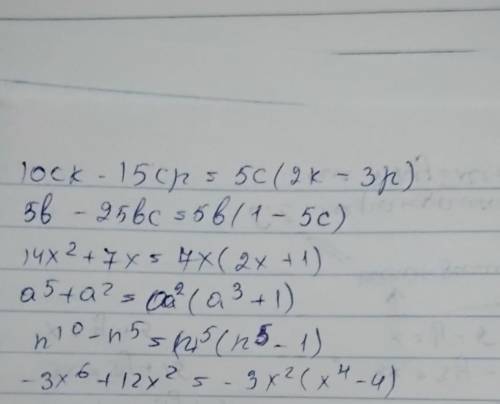 10ck - 15cp = 5c(2k - 3p)
5b - 25bc = 5b(1 - 5c)
14x² + 7x = 7x(2x + 1)
a⁵ + a² = a²(a³ + 1)
n¹⁰ - n⁵ = n⁵(n⁵ - 1)
-3x⁶ + 12x² = -3x²(x⁴ - 4)